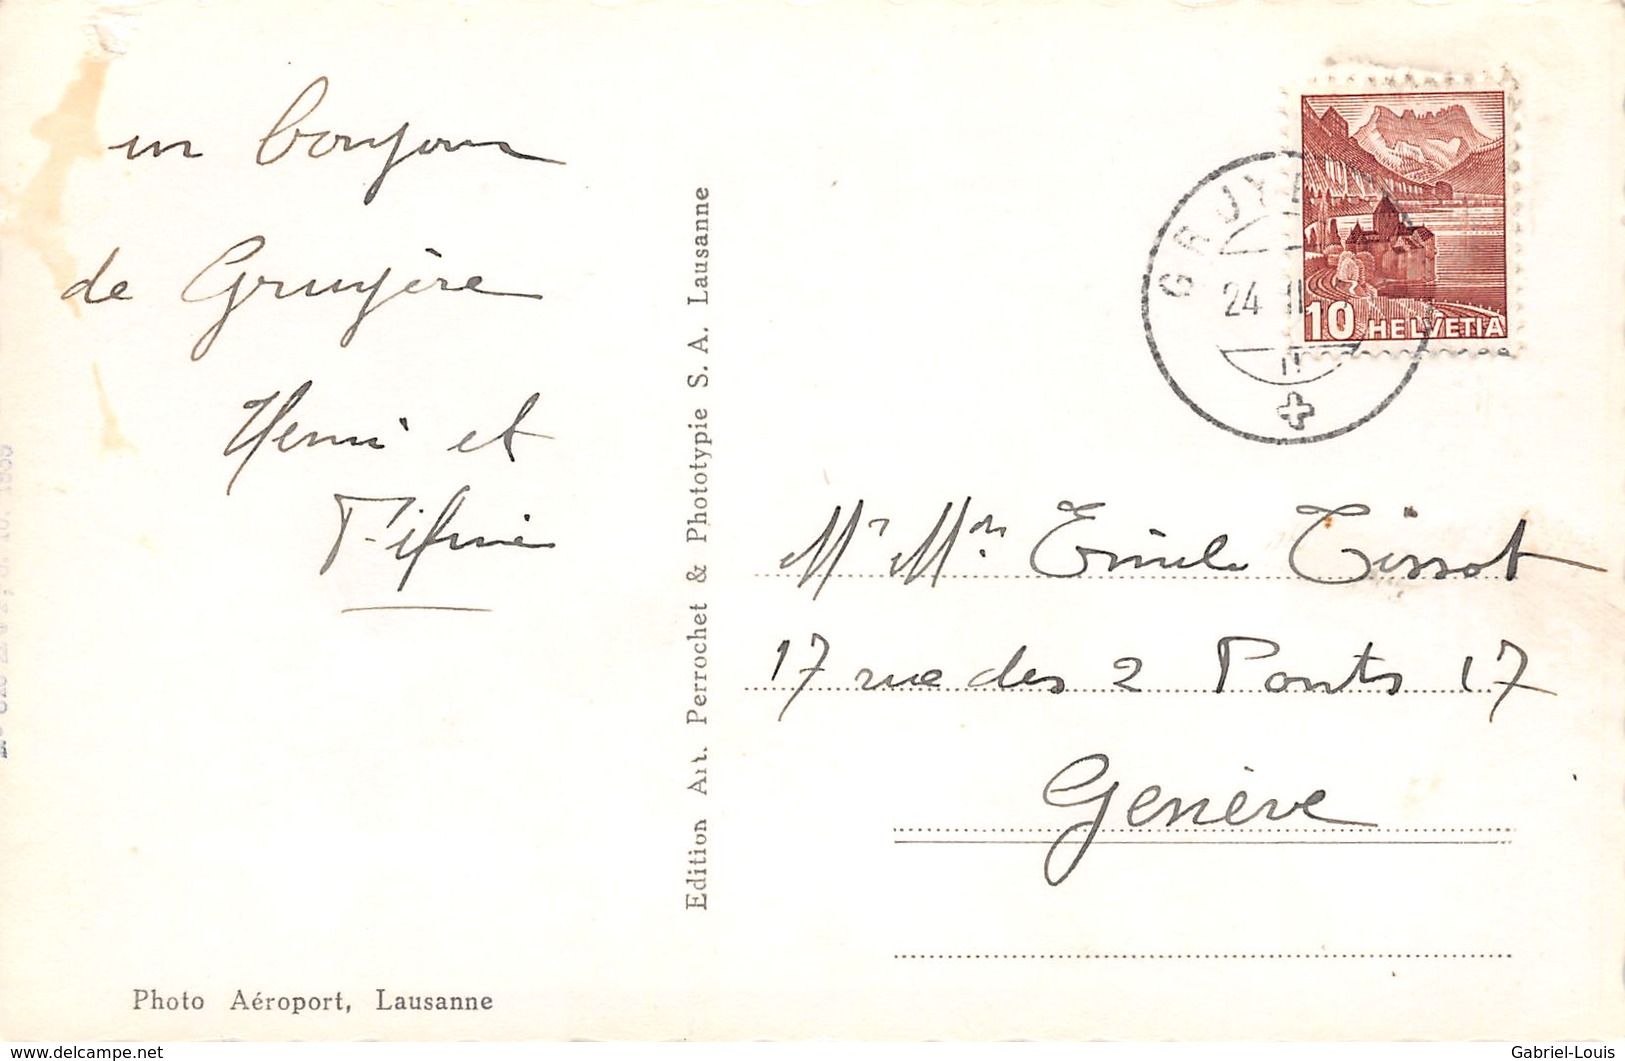 un bonjour
de Gruyère
Henri et
Fifine
Photo Aéroport, Lausanne
Edition Art. Perrochet & Phototypie S. A. Lausanne
GRUYE
24 II
10 HELVETIA
Mr Mme Emile Tissot
17 rue des 2 Ponts 17
Genève
www.delcampe.net
Gabriel-Louis